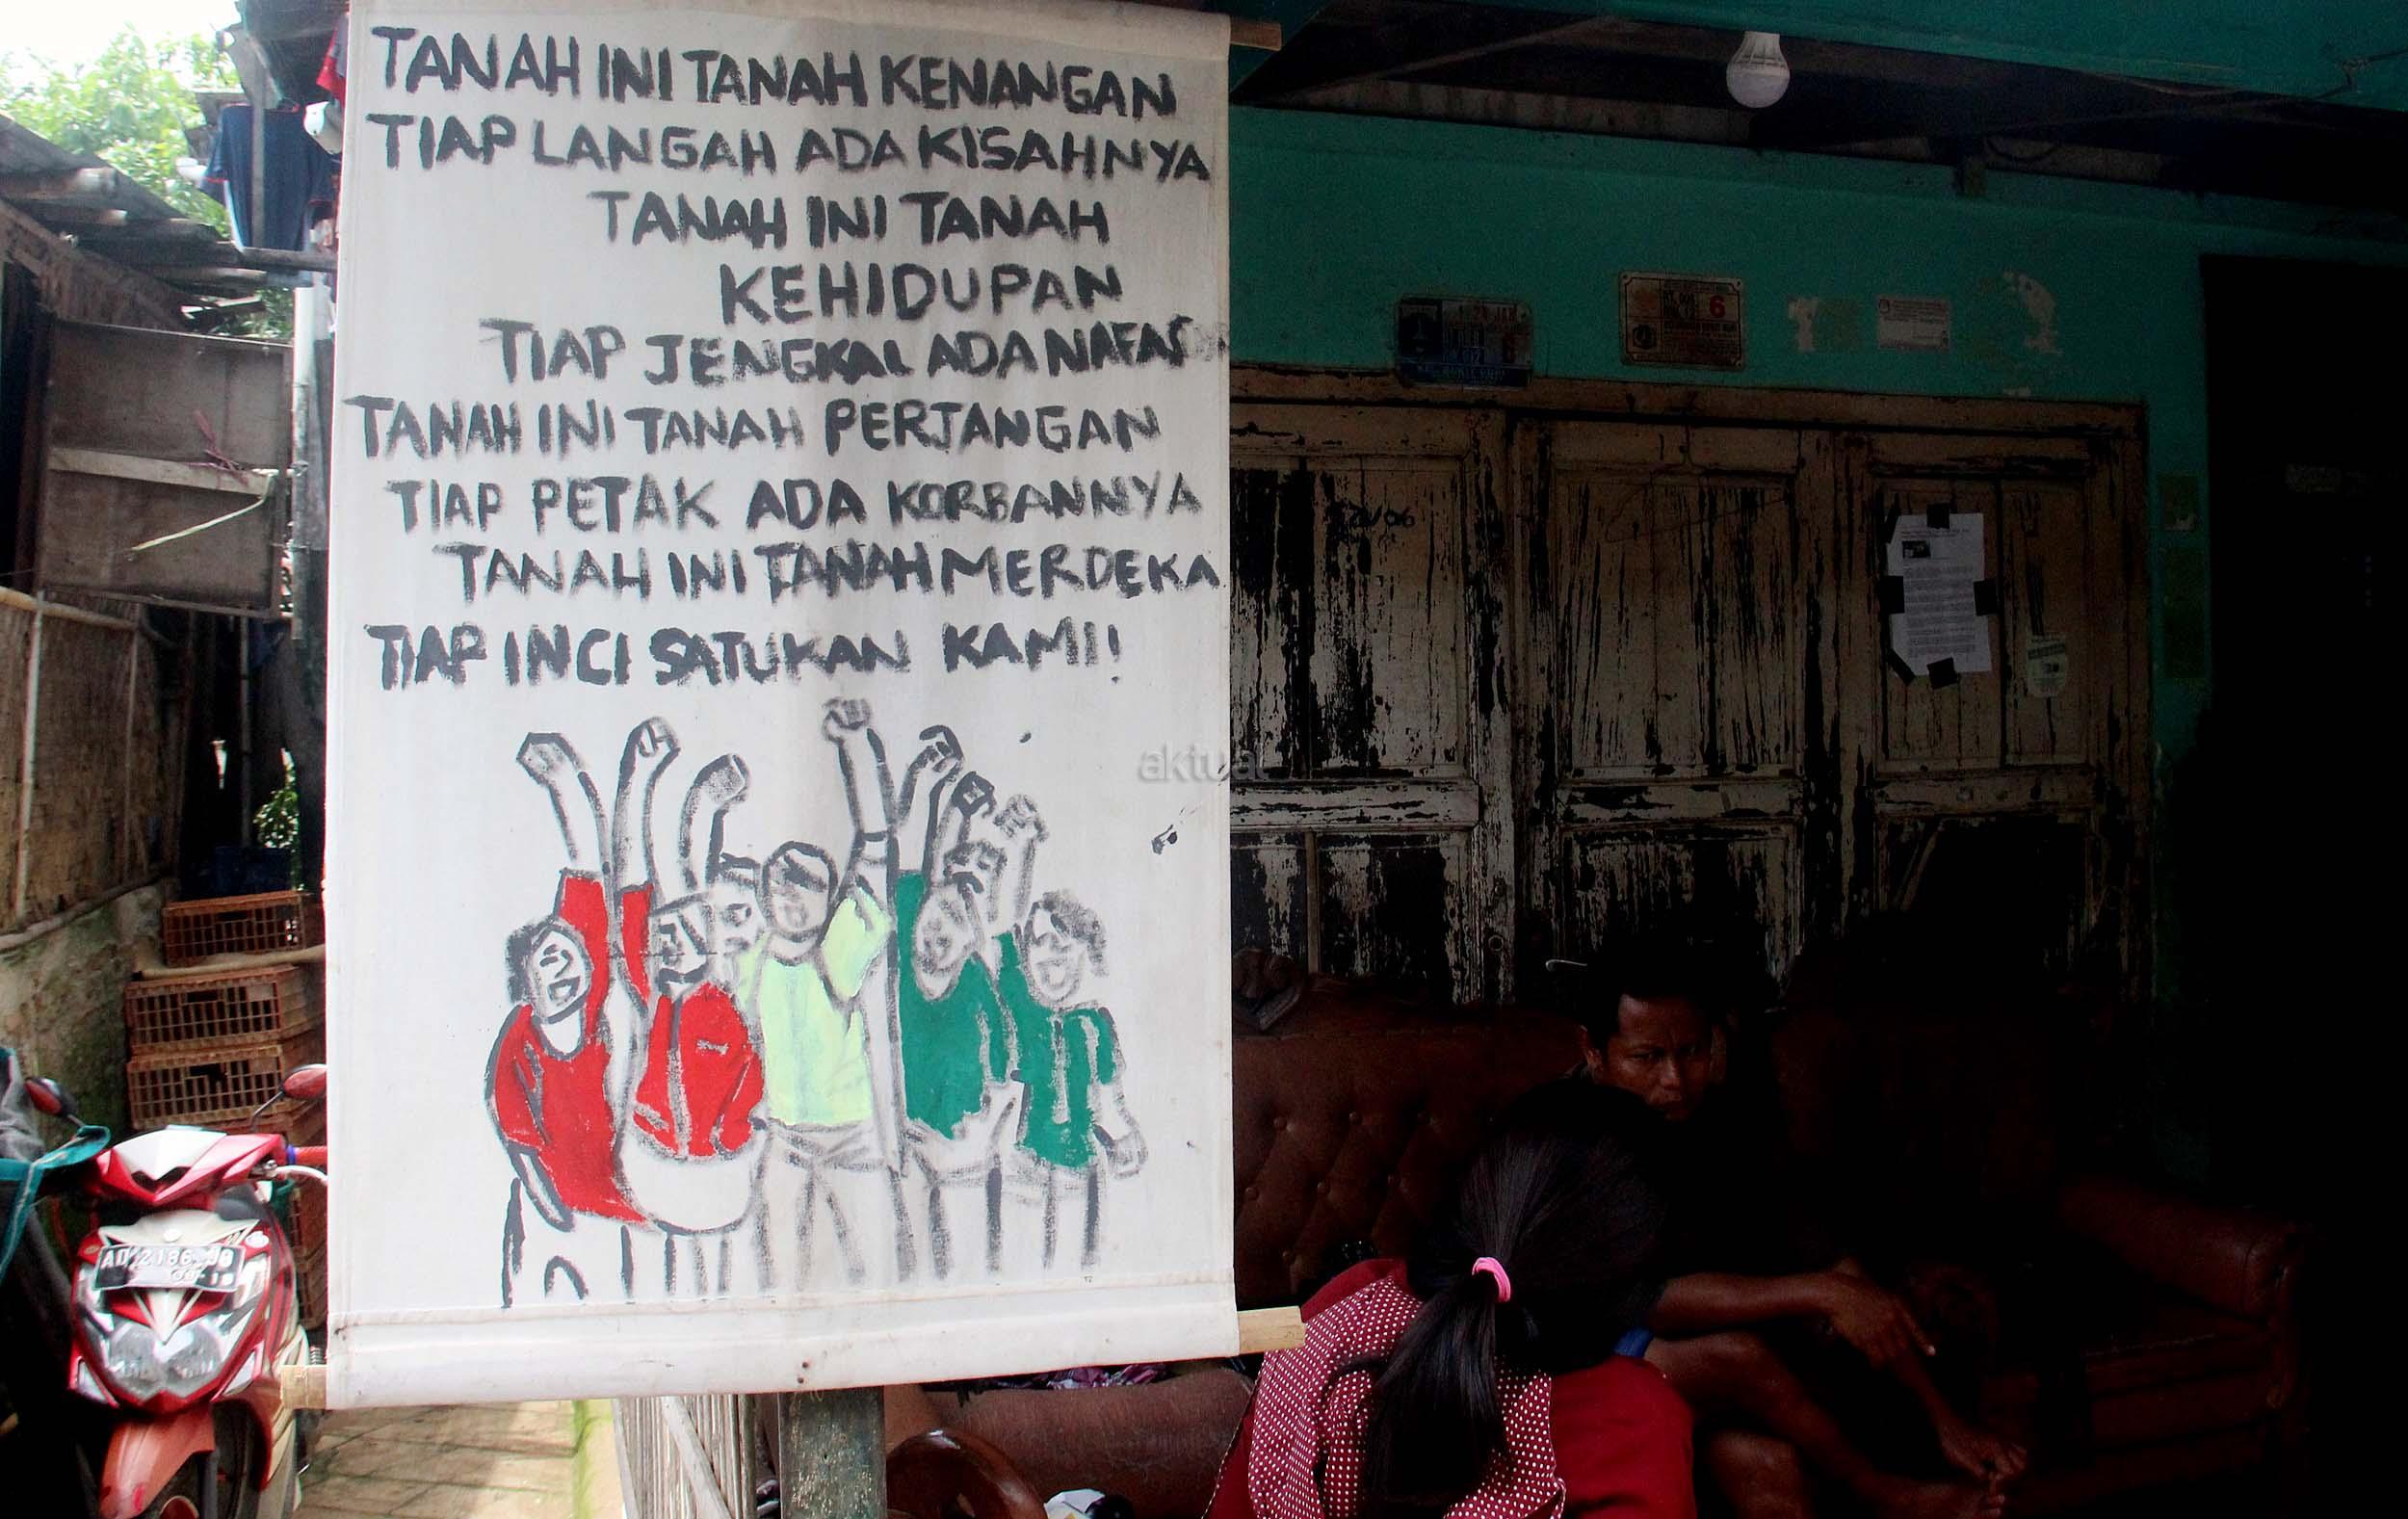 TANAH INI TANAH KENANGAN
TIAP LANGAH ADA KISAHNYA
TANAH INI TANAH
KEHIDUPAN
TIAP JENGKAL ADA NAFAS
TANAH INI TANAH PERJANGAN
TIAP PETAK ADA KORBANNYA
TANAH INI TANAH MERDEKA
TIAP INCI SATUKAN KAMI!
aktual
6
6